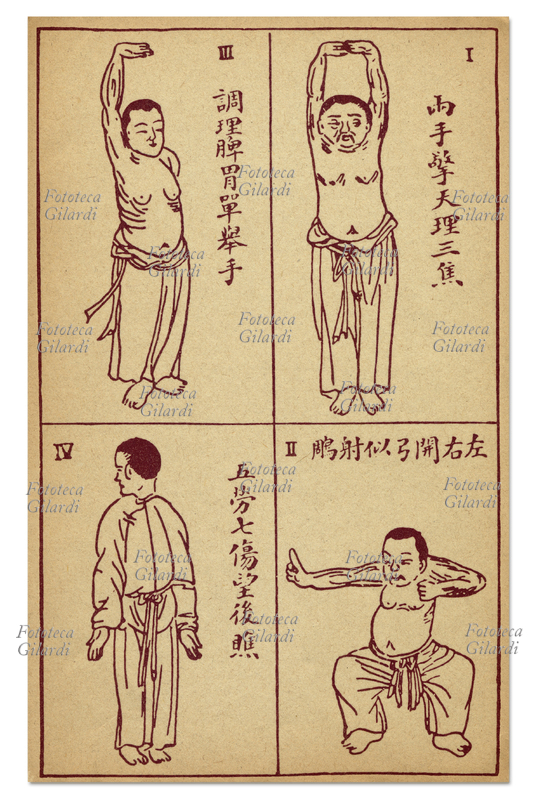 I
兩手擎天理三焦
II
左右開弓似射鵰
III
調理脾胃單舉手
IV
五勞七傷望後瞧
Fototeca
Gilardi
Fototeca
Gilardi
Fototeca
Gilardi
Fototeca
Gilardi
Fototeca
Gilardi
Fototeca
Gilardi
Fototeca
Gilardi
Fototeca
Gilardi
Fototeca
Gilardi
Fototeca
Gilardi
Fototeca
Gilardi
Fototeca
Gilardi
Fototeca
Gilardi
Fototeca
Gilardi
Fototeca
Gilardi
Fototeca
Gilardi
Fototeca
Gilardi
Fototeca
Gilardi